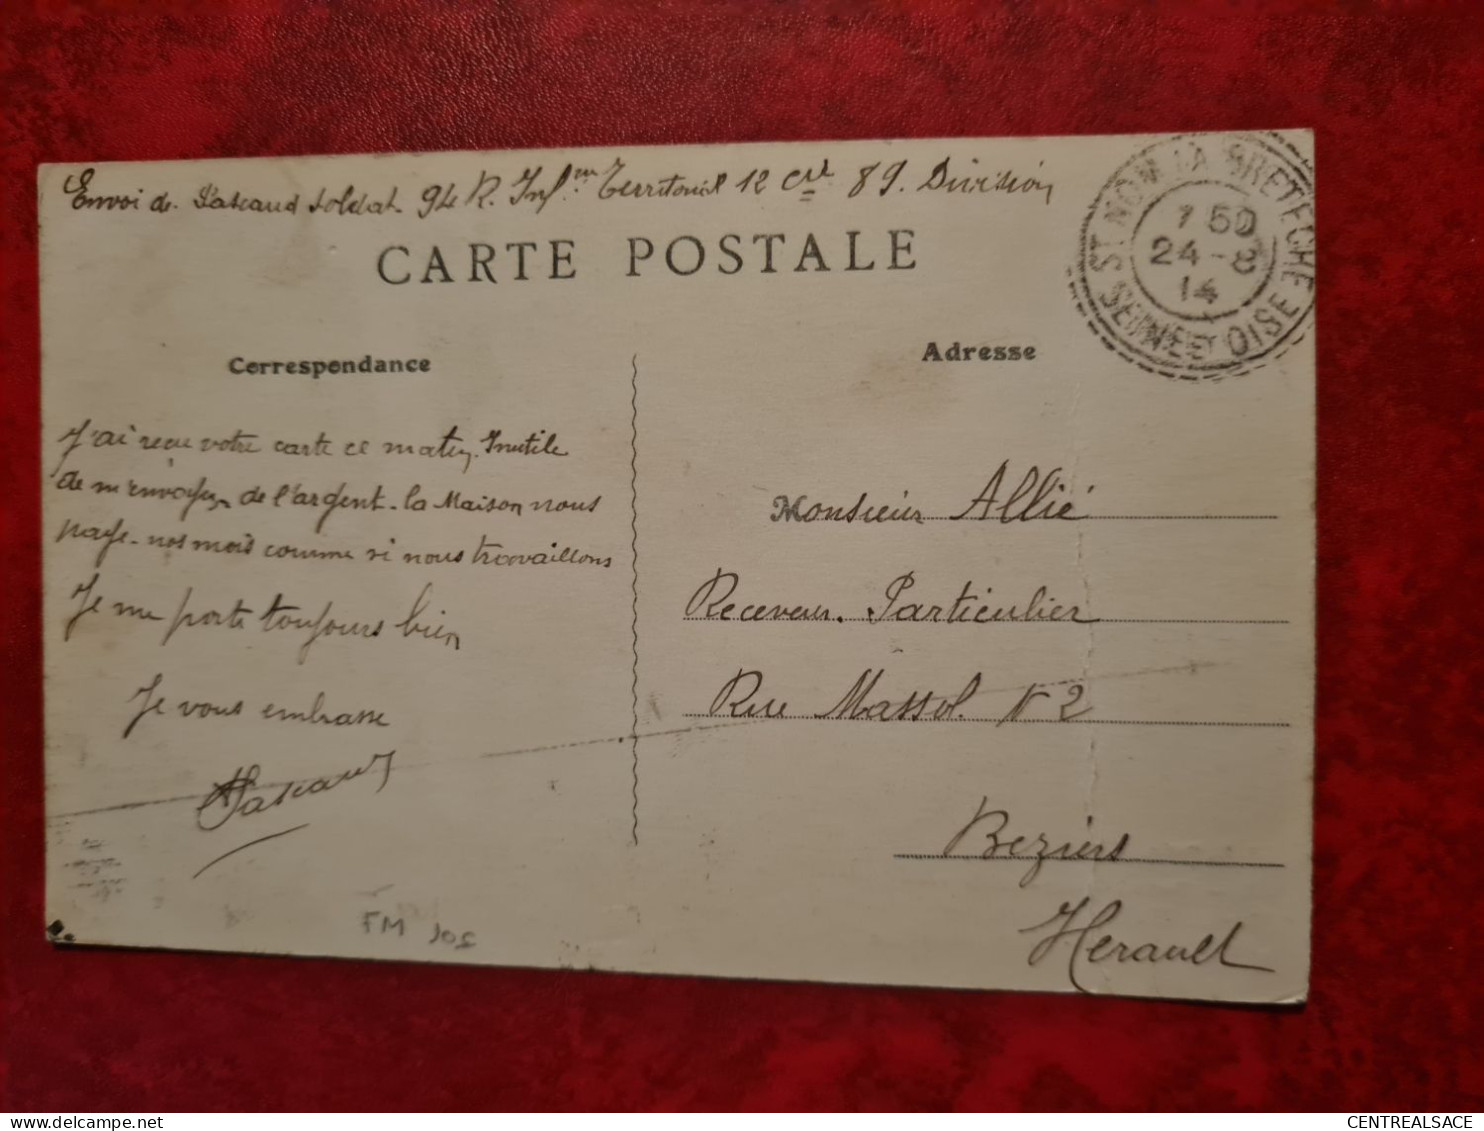 Envoi de Pascaud soldat 94 R. Inf.en Territorial 12 Cie 89. Division
ST NOM LA BRETECHE
7 50
24 - 8
14
SEINE ET OISE
CARTE POSTALE
Correspondance
Adresse
J'ai recu votre carte ce matin. Inutile
de m'envoyer de l'argent. la Maison nous
paye nos mois comme si nous travaillons
Je me porte toujours bien
Je vous embrasse
Pascaud
Monsieur Allié
Receveur. Particulier
Rue Massol. N 2
Beziers
Herault
FM 10€
CENTREALSACE